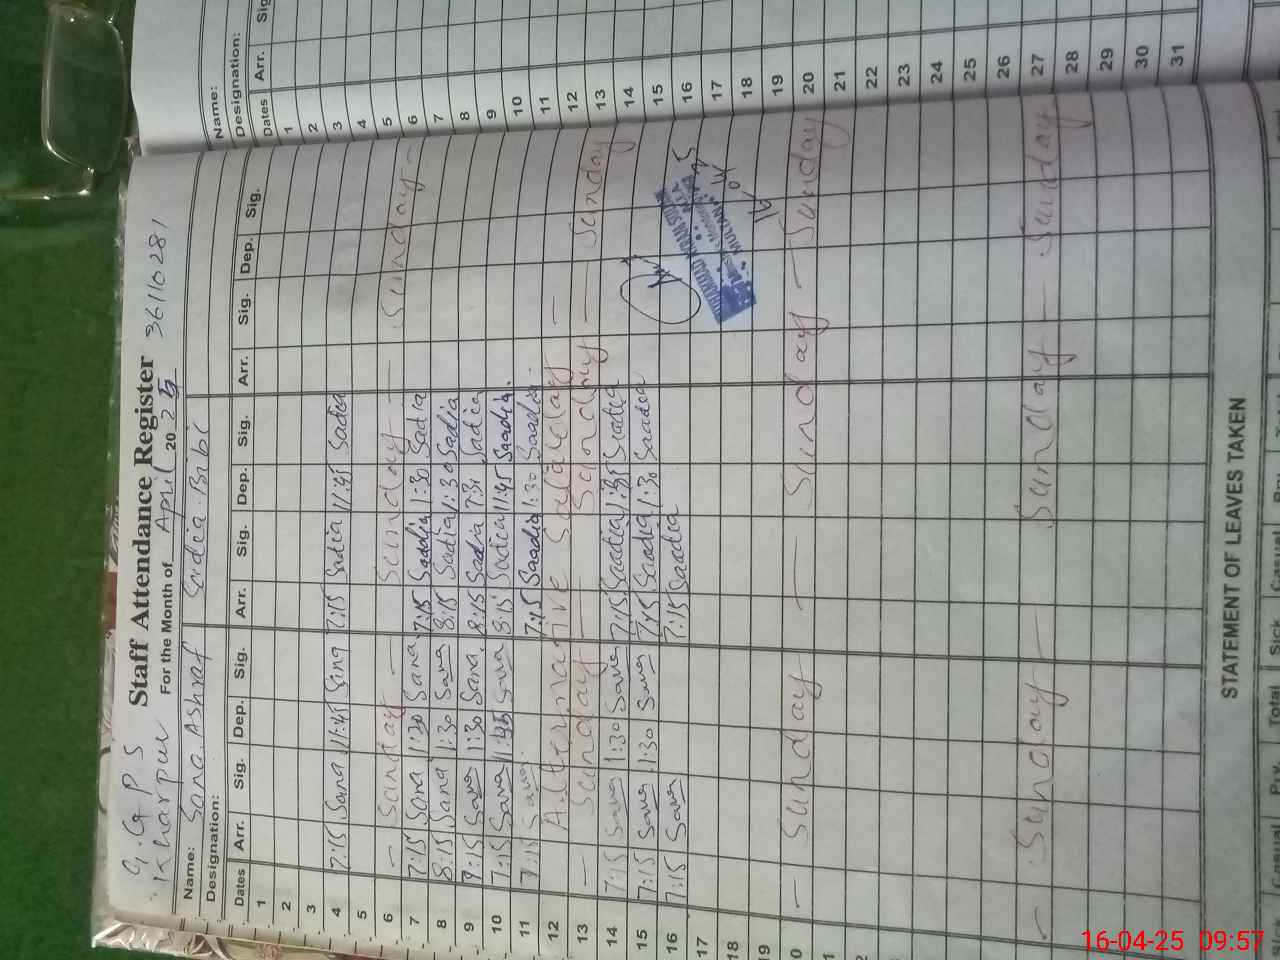 G. G P S
Kharpur
Staff Attendance Register
For the Month of April 2025 36110281
Name: Sana. Ashraf Sadia. Bibi
Designation:
Dates Arr. Sig. Dep. Sig. Arr. Sig. Dep. Sig. Arr. Sig. Dep. Sig.
1
2
3
4 7:15 Sana 11:45 Sana 7:15 Sadia 11:45 Sadia
5
6 Sunday Sunday Sunday
7 7:15 Sana 1:30 Sana 7:15 Saddia 1:30 Sadia
8 8:15 Sana 1:30 Sana 8:15 Sadia 1:30 Sadia
9 Sana 1:30 Sana. 8:15 Sadia Sadia
10 7:15 Sana Sana 8:15 Sadia 11:45 Saadia.
11 7:15 Sana 7:15 Saadia 1:30 Saadia.
12 Alternative
13 Sunday Sunday Sunday
14 7:15 Sana 1:30 Sana 7:15 Saadia 1:30 Saadia
15 7:15 Sana 1:30 Sana 7:15 Saadia 1:30 Saadia
16 7:15 Sana 7:15 Saadia
MULTAN
16
04
25
17
18
19
20 Sunday Sunday Sunday
21
22
23
24
25
26
27 Sunday Sunday Sunday
28
29
30
31
STATEMENT OF LEAVES TAKEN
Name:
Designation:
Dates Arr. Sig.
1
2
3
4
5
6
7
8
9
10
11
12
13
14
15
16
17
18
19
20
21
22
23
24
25
26
27
28
29
30
31
Casual Pv. Total Sick Casual
16-04-25 09:57